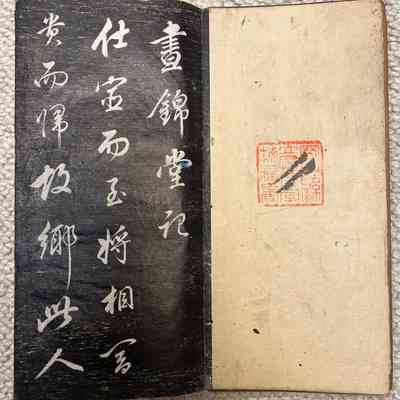 晝錦堂記
仕宦而至將相富
貴而歸故鄉此人